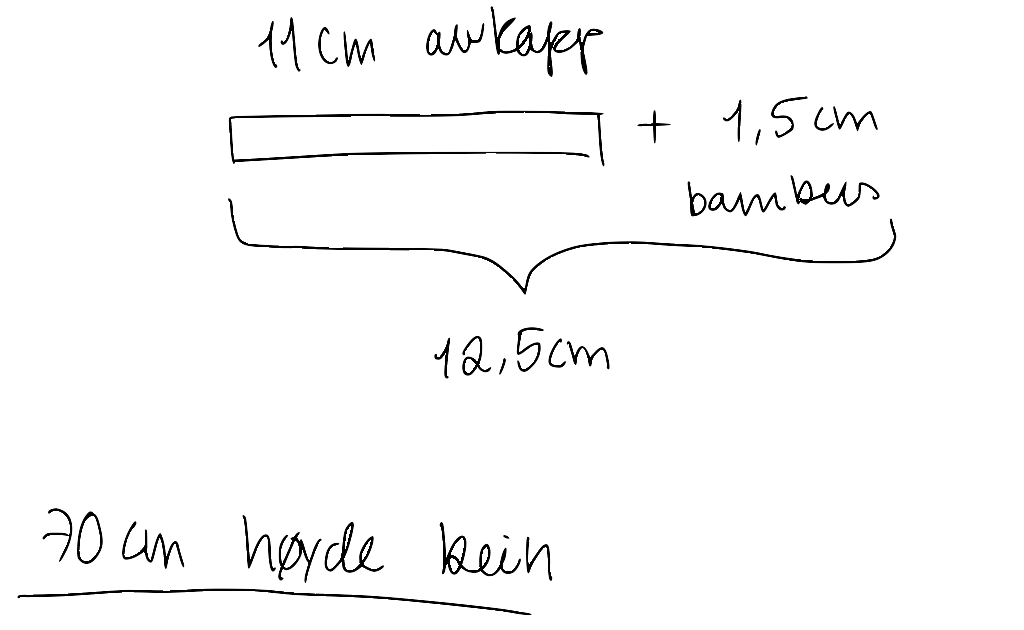 11 cm avkapp
+ 1,5 cm
bambus
12,5 cm
70 cm høyde bein